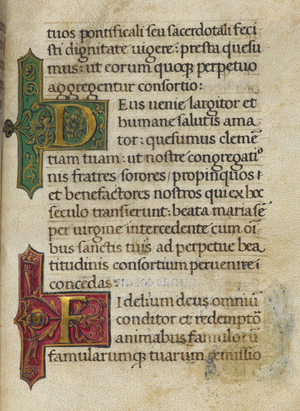 tuos pontificali seu sacerdotali feci
sti dignitate vigere: presta quesu
mus: ut eorum quoqȝ perpetuo
aggregentur consortio:
DEus uenie largitor et
humane salutis ama
tor: quesumus clemē
tiam tuam: ut nostre congregatiōis
fratres sorores/propinquos/
et benefactores nostros qui ex hoc
seculo transierunt: beata maria sē
per uirgine intercedente cum oī
bus sanctis tuis ad perpetue bea
titudinis consortium peruenire
concedas:
FIdelium deus omniū
conditor et redemptō
animabus famulorū
famularumqȝ tuarum